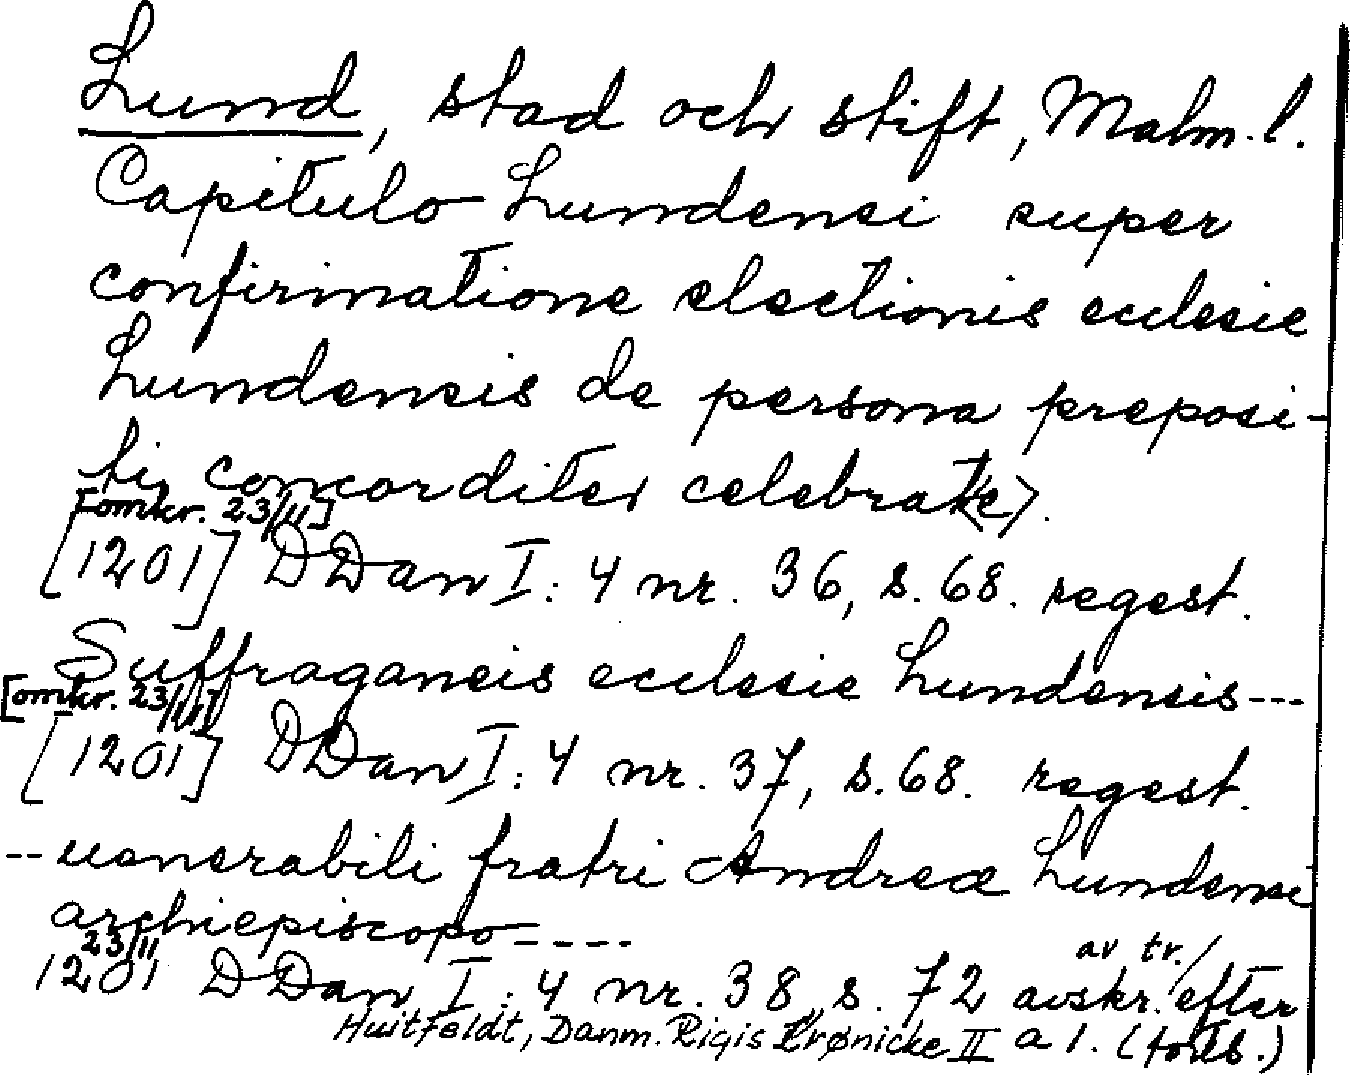 Lund, stad och stift, Malm. l.
Capitulo Lundensi super
confirmatione electionis ecclesie
Lundensis de persona preposi-
ti concorditer celebrat<e>.
[omkr. 23/11]
[1201] DDan I: 4 nr. 36, s. 68. regest.
Suffraganeis ecclesie Lundensis ---
[omkr. 23/11]
[1201] DDan I: 4 nr. 37, s. 68. regest.
-- uenerabili fratri Andreæ Lundensi
archiepiscopo ----
23/11 av tr./
1201 DDan I: 4 nr. 38, s. 72 avskr. efter
Huitfeldt, Danm. Rigis Krønicke II a 1. (forts.)